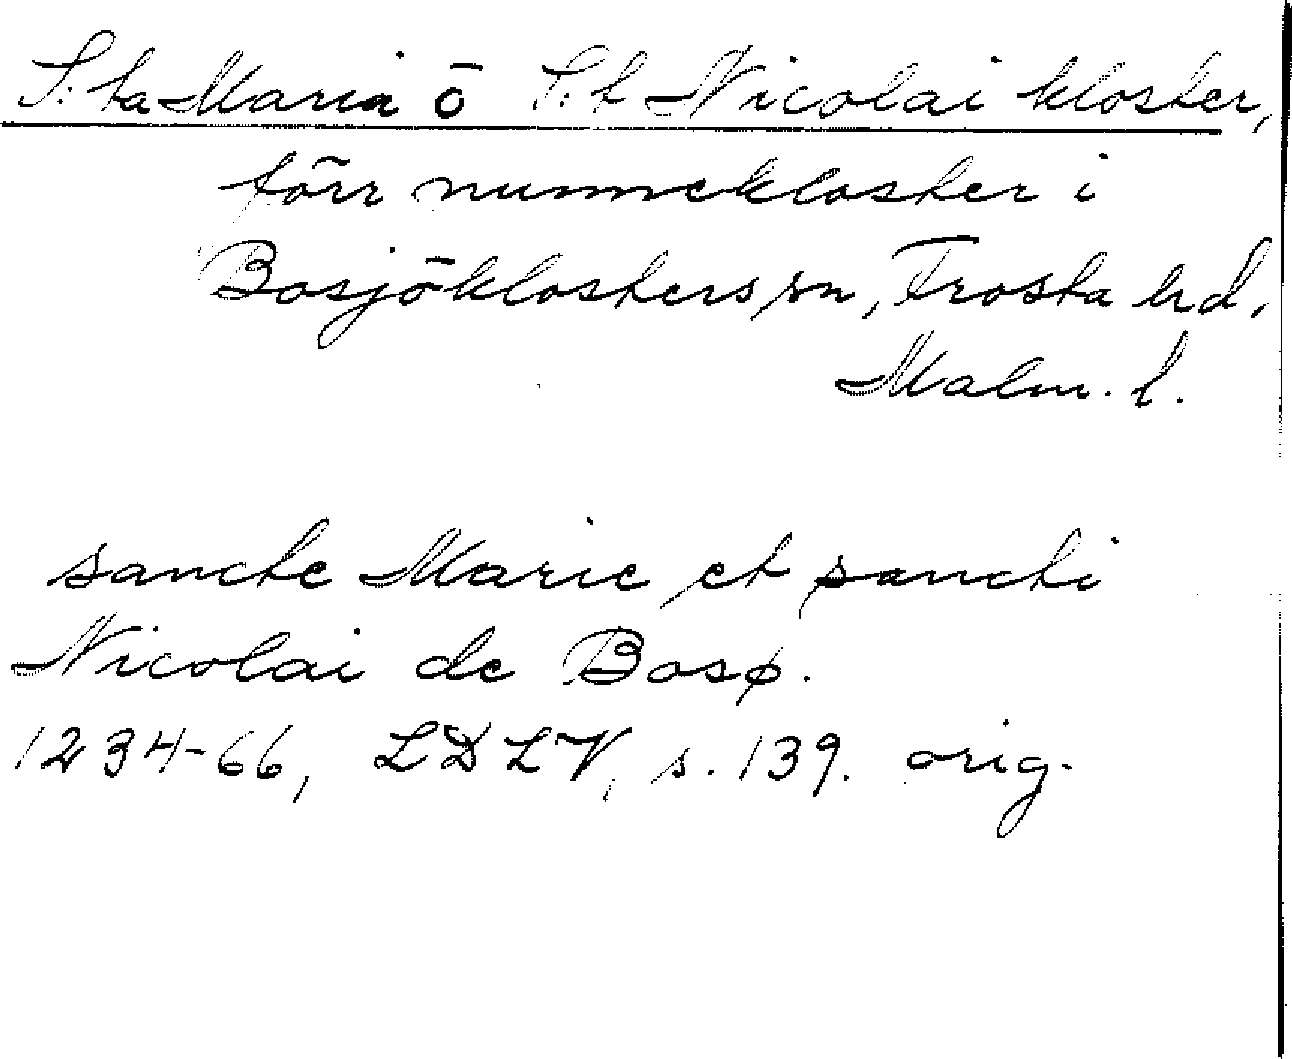 S:ta Maria o S:t Nicolai kloster,
förr nunnekloster i
Bosjöklosters sn, Frosta hd,
Malm. l.
sancte Marie et sancti
Nicolai de Bosø.
1234-66, LDLV, s. 139. orig.